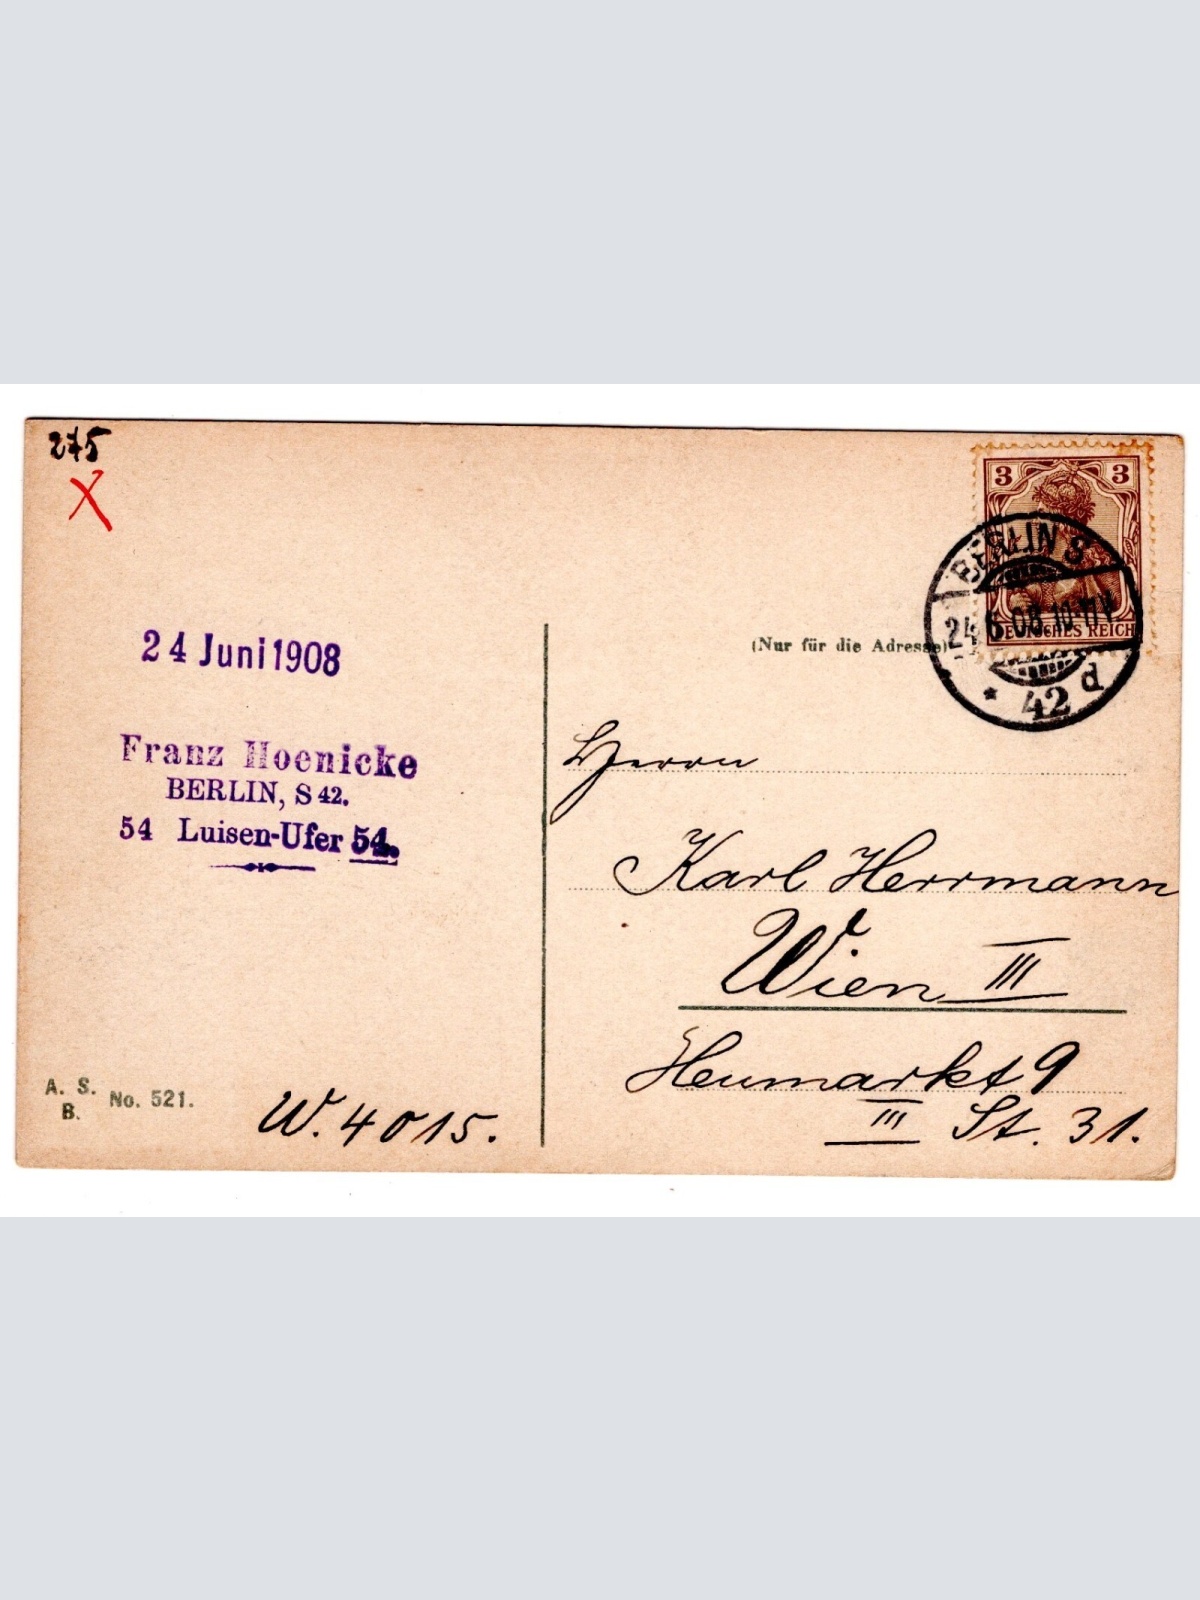 275
X
3 3
BERLIN S
24.6.08.10-11V.
DEUTSCHES REICH
* 42 d
24 Juni 1908
(Nur für die Adresse)
Franz Hoenicke
BERLIN, S 42.
54 Luisen-Ufer 54.
Herrn
Karl Herrmann
Wien III
Heumarkt 9
III St. 31.
A. S.
B. No. 521.
W. 4015.